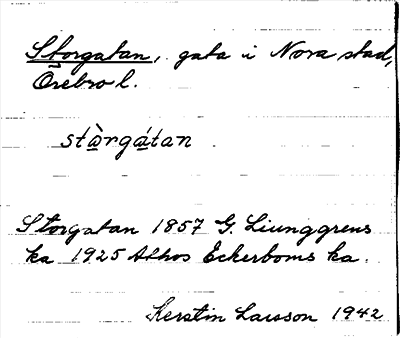 Storgatan, gata i Nora stad,
Örebro l.
stàrgátan
Storgatan 1857 G. Liunggrens
ka 1925 Athos Eckerboms ka.
Kerstin Larsson 1942